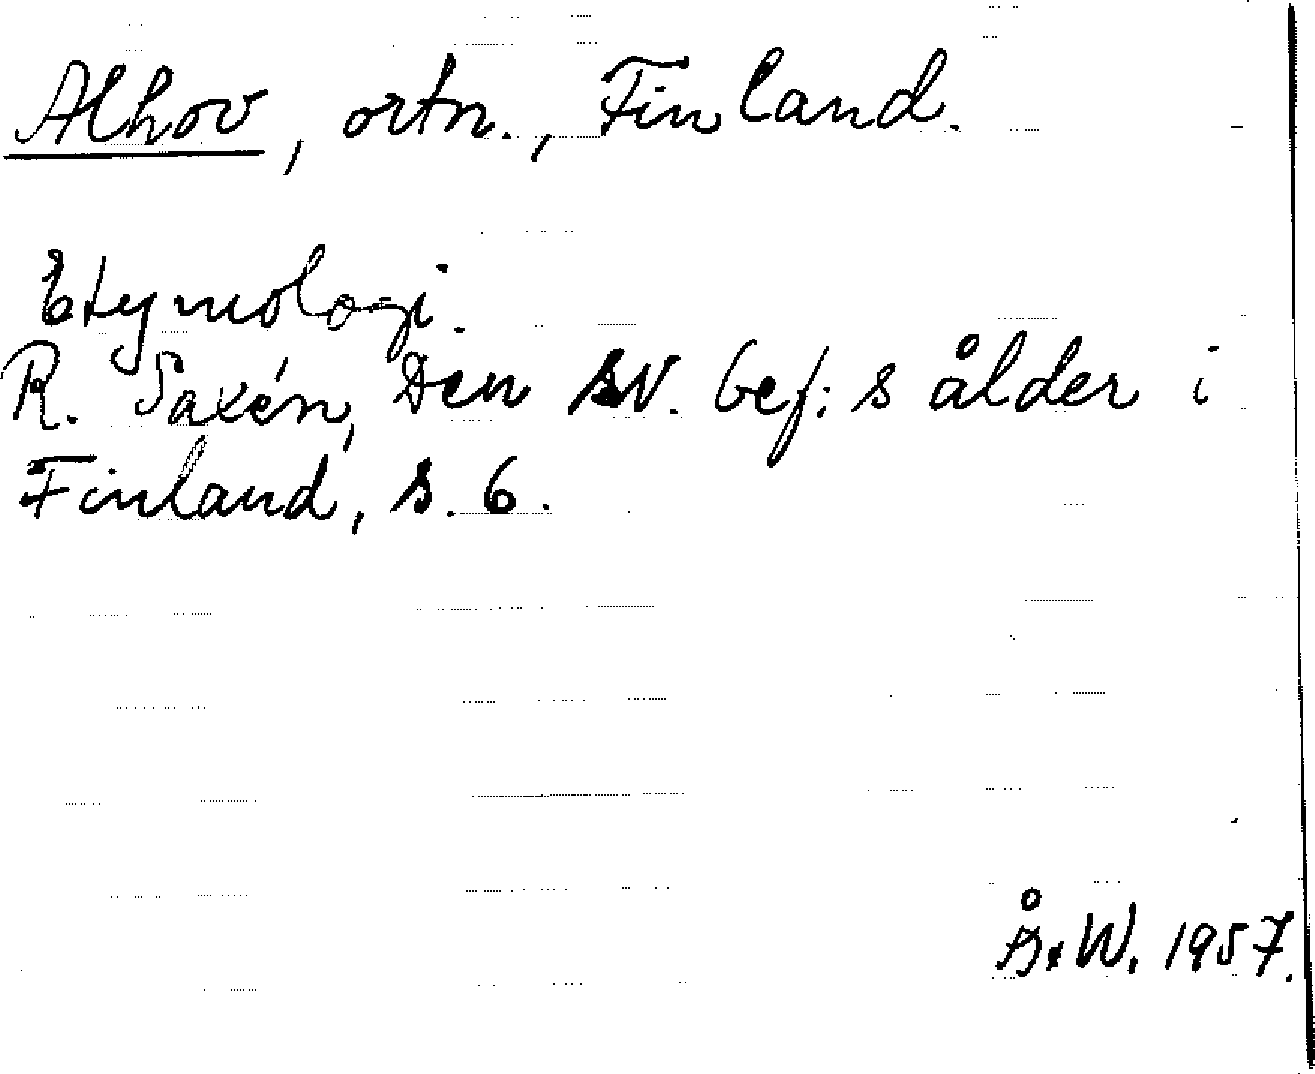 Alhov, ortn., Finland.
Etymologi.
R. Saxén, Den sv. bef:s ålder i
Finland, s. 6.
Å. W. 1957.